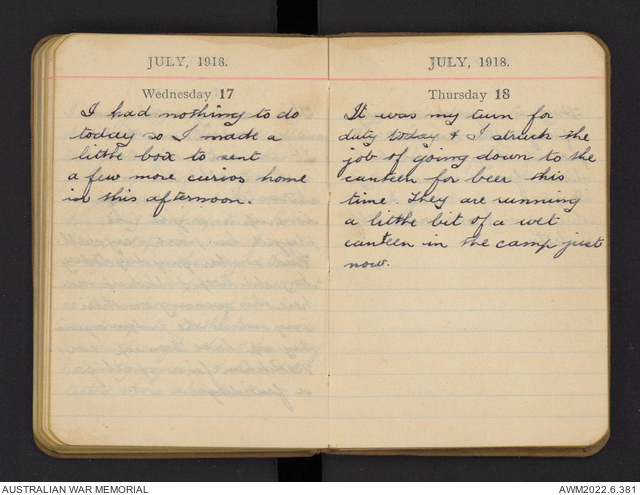 JULY, 1918.
Wednesday 17
I had nothing to do
today so I made a
little box to sent
a few more curios home
in this afternoon.
JULY, 1918.
Thursday 18
It was my turn for
duty today & I struck the
job of going down to the
canteen for beer this
time. They are running
a little bit of a wet
canteen in the camp just
now.
AUSTRALIAN WAR MEMORIAL
AWM2022.6.381